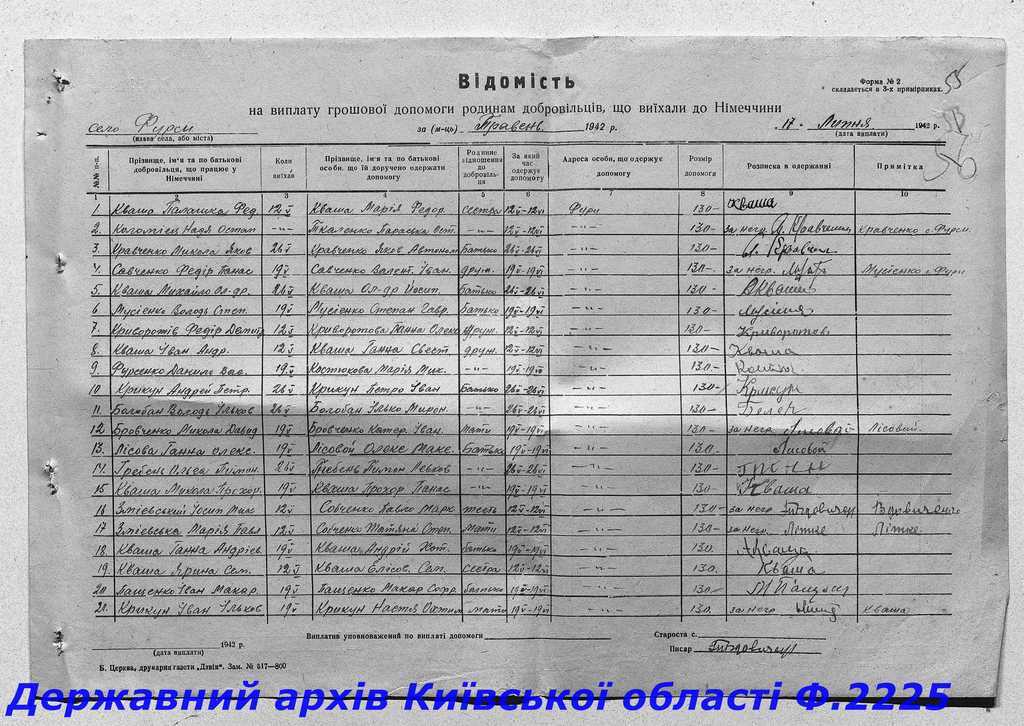 Відомість
Форма № 2
складається в 3-х примірниках.
55
на виплату грошової допомоги родинам добровільців, що виїхали до Німеччини
село Фурси
(назва села, або міста)
за (м-ць) Травень 1942 р.
17 Липня 1942 р.
(дата виплати)
56
№№ п.п. Прізвище, ім'я та по батькові добровільця, що працює у Німеччині Коли виїхав Прізвище, ім'я та по батькові особи, що їй доручено одержати допомогу Родинне відношення до добровільця За який час одержує допомогу Адреса особи, що одержує допомогу Розмір допомоги Розписка в одержанні Примітка
1 3 4 5 6 7 8 9 10
1. Кваша Палашка Фед. 12 V Кваша Марія Федор. сестра 12 V-12 VI Фурси 130- Кваша
2. Коломієць Надя Остап -"- Ткаленко Параска Ост. -"- 12 V-12 VI -"- 130- за неї Кравченко Кравченко с. Фурси
3. Кравченко Микола Яков 26 V Кравченко Яков Автоном. Батько 26 V-26 VI -"- 130-
4. Савченко Федір Панас 19 V Савченко Валент. Іван друж. 19 V-19 VI -"- 130- за него Мусієнко с. Фурси
5. Кваша Михайло Ол-др. 26 V Кваша Ол-др Йосип. Батько 26 V-26 VI -"- 130- Кваша
6 Мусієнко Володь Степ. 19 V Мусієнко Степан Гавр. Батько 19 V-19 VI -"- 130-
7. Криворотів Федір Дмитр 12 V Криворотова Ганна Олекс друж. 12 V-12 VI -"- 130- Криворотов
8. Кваша Іван Андр. 12 V Кваша Ганна Свест. друж. 12 V-12 VI -"- 130- Кваша
9. Фурсенко Данило Вас. 19 V Костюкова Марія Мик. -"- 19 V-19 VI -"- 130-
10. Крикун Андрей Петр. 26 V Крикун Петро Іван Батько 26 V-26 VI -"- 130- Крикун
11. Болобан Володь Ільков 26 V Болобан Ілько Мирон. -"- 26 V-26 VI -"- 130-
12 Бровченко Микола Давид 19 V Бровченко Катер. Іван. Мати 19 V-19 VI -"- 130- за него Лісовий Лісовий.
13. Лісова Ганна Олекс. 19 V Лісовой Олекс Макс. Батько 19 V-19 VI -"- 130. Лисовой
14. Гребень Ольга Пимон. 26 V Гребень Пимон Левков -"- 26 V-26 VI -"- 130-
15 Кваша Микола Прохор. 19 V Кваша Прохор Панас -"- 19 V-19 VI -"- 130- Кваша
16 Зміевський Йосип Мик 12 V Собченко Павло Марк тесть 12 V-12 VI -"- 130- за него
17 Зміевська Марія Павл 12 V Собченко Татяна Степ. Мати 12 V-12 VI -"- 130- за него Літке Літке.
18. Кваша Ганна Андріев. 19 V Кваша Андрій Хот. Батько 19 V-19 VI -"- 130. Кваша
19. Кваша Ярина Сем. 12 V Кваша Елісов. Сем. Сестра 12 V-12 VI -"- 130. Кваша
20 Пащенко Іван Макар. 19 V Пащенко Макар Софр. Батько 19 V-19 VI -"- 130-
21. Крикун Іван Ільков 19 V Крикун Настя Охтим. Мати 19 V-19 VI -"- 130. за него Кваша
1942 р.
(дата виплати)
Виплатив уповноважений по виплаті допомоги
Староста с.
Писар
Б. Церква, друкарня газети „Дзвін". Зам. № 617—800
Державний архів Київської області Ф.2225